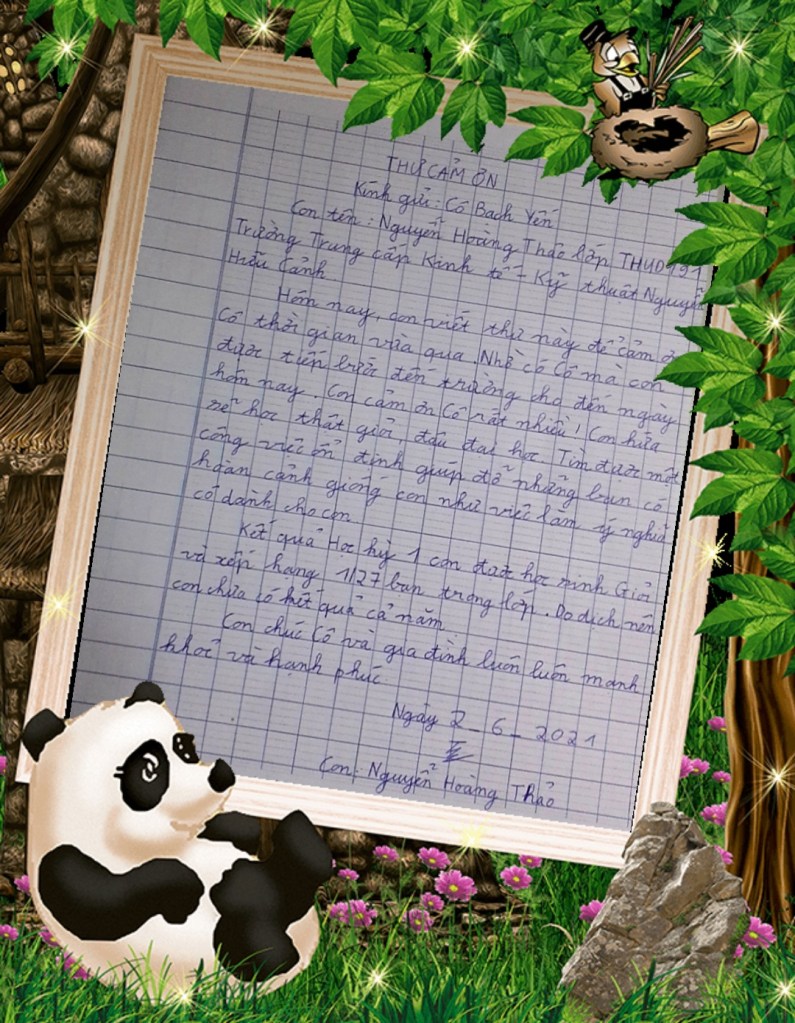 THƯ CẢM ƠN
Kính gửi: Cô Bạch Yến
Con tên: Nguyễn Hoàng Thảo lớp THUD191
Trường Trung cấp Kinh tế - Kỹ thuật Nguyễn
Hữu Cảnh
Hôm nay, con viết thư này để cảm ơn
Cô thời gian vừa qua. Nhờ có Cô mà con
được tiếp bước đến trường cho đến ngày
hôm nay. Con cảm ơn Cô rất nhiều! Con hứa
sẽ học thật giỏi, đậu đại học. Tìm được một
công việc ổn định giúp đỡ những bạn có
hoàn cảnh giống con như việc làm ý nghĩa
cô dành cho con.
Kết quả Học kỳ 1 con đạt học sinh Giỏi
và xếp hạng 1/27 bạn trong lớp. Do dịch nên
con chưa có kết quả cả năm.
Con chúc Cô và gia đình luôn luôn mạnh
khoẻ và hạnh phúc
Ngày 2_6_2021
Con: Nguyễn Hoàng Thảo